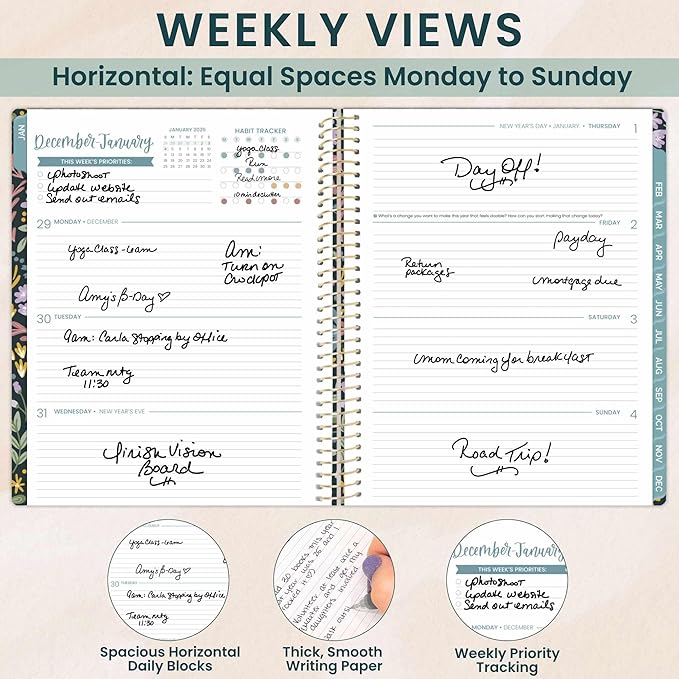 WEEKLY VIEWS
Horizontal: Equal Spaces Monday to Sunday
JAN
December-January
JANUARY 2026
HABIT TRACKER
Yoga Class
Run
Read more
10 min declutter
THIS WEEK'S PRIORITIES:
Photoshoot
Update website
Send out emails
29 MONDAY • DECEMBER
Yoga Class - 6am
Amy's B-Day ♡
Am:
Turn on
Crockpot
30 TUESDAY
9am: Carla Stopping by Office
Team mtg
11:30
31 WEDNESDAY • NEW YEAR'S EVE
Finish Vision
Board
NEW YEAR'S DAY • JANUARY • THURSDAY 1
Day Off!
What's a change you want to make this year that feels doable? How can you start making that change today?
FRIDAY 2
Payday
Return
packages
mortgage due
SATURDAY 3
Mom coming for breakfast
SUNDAY 4
Road Trip!
FEB
MAR
APR
MAY
JUN
JUL
AUG
SEP
OCT
NOV
DEC
Yoga Class - 6am
Amy's B-Day ♡
30 TUESDAY
9am: Carla Stopping by Office
Team mtg
11:30
Spacious Horizontal
Daily Blocks
30 books this year
year was 25 and I
Volunteer at least once a
quarter and get my
daughters involved
Thick, Smooth
Writing Paper
December-January
THIS WEEK'S PRIORITIES:
Photoshoot
Update website
Send out emails
MONDAY • DECEMBER
Weekly Priority
Tracking